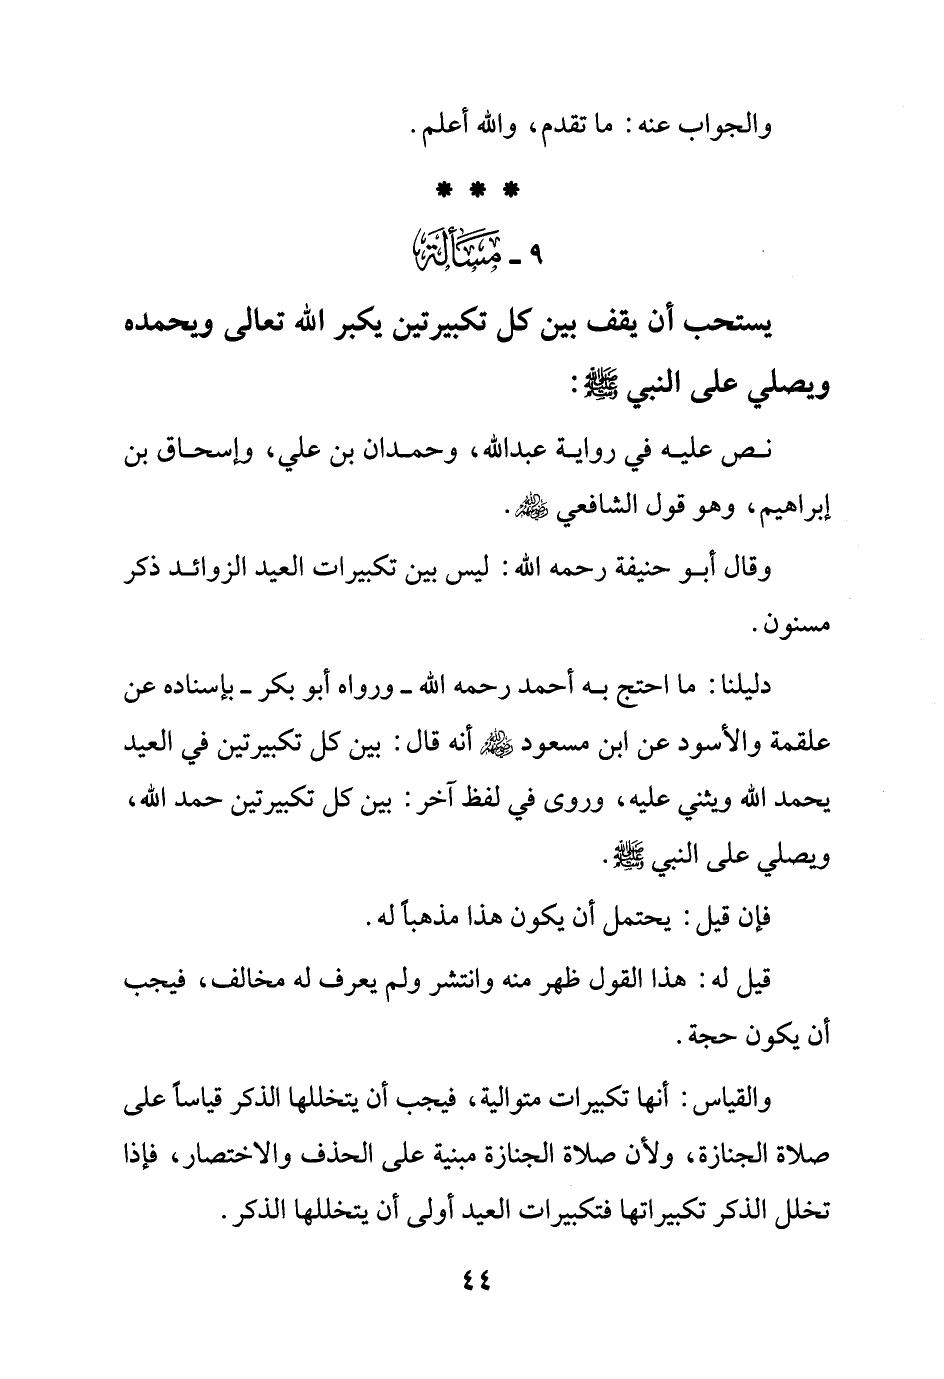 والجواب عنه: ما تقدم، والله أعلم.
* * *
٩ ـ مسألة
يستحب أن يقف بين كل تكبيرتين يكبر الله تعالى ويحمده
ويصلي على النبي ﷺ:
نص عليه في رواية عبدالله، وحمدان بن علي، وإسحاق بن
إبراهيم، وهو قول الشافعي رضي الله عنه.
وقال أبو حنيفة رحمه الله: ليس بين تكبيرات العيد الزوائد ذكر
مسنون.
دليلنا: ما احتج به أحمد رحمه الله ـ ورواه أبو بكر ـ بإسناده عن
علقمة والأسود عن ابن مسعود رضي الله عنه أنه قال: بين كل تكبيرتين في العيد
يحمد الله ويثني عليه، وروى في لفظ آخر: بين كل تكبيرتين حمد الله،
ويصلي على النبي ﷺ.
فإن قيل: يحتمل أن يكون هذا مذهباً له.
قيل له: هذا القول ظهر منه وانتشر ولم يعرف له مخالف، فيجب
أن يكون حجة.
والقياس: أنها تكبيرات متوالية، فيجب أن يتخللها الذكر قياساً على
صلاة الجنازة، ولأن صلاة الجنازة مبنية على الحذف والاختصار، فإذا
تخلل الذكر تكبيراتها فتكبيرات العيد أولى أن يتخللها الذكر.
٤٤